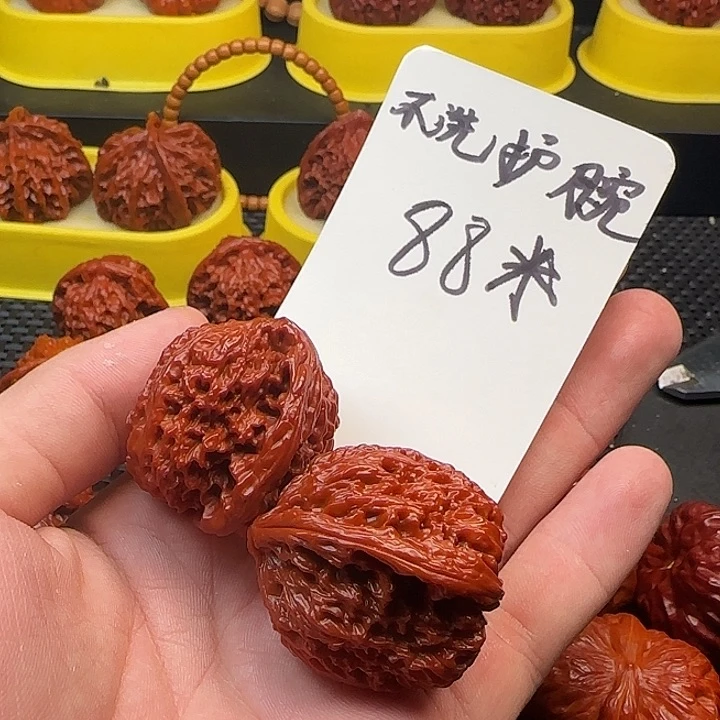 不洗护腕
88米